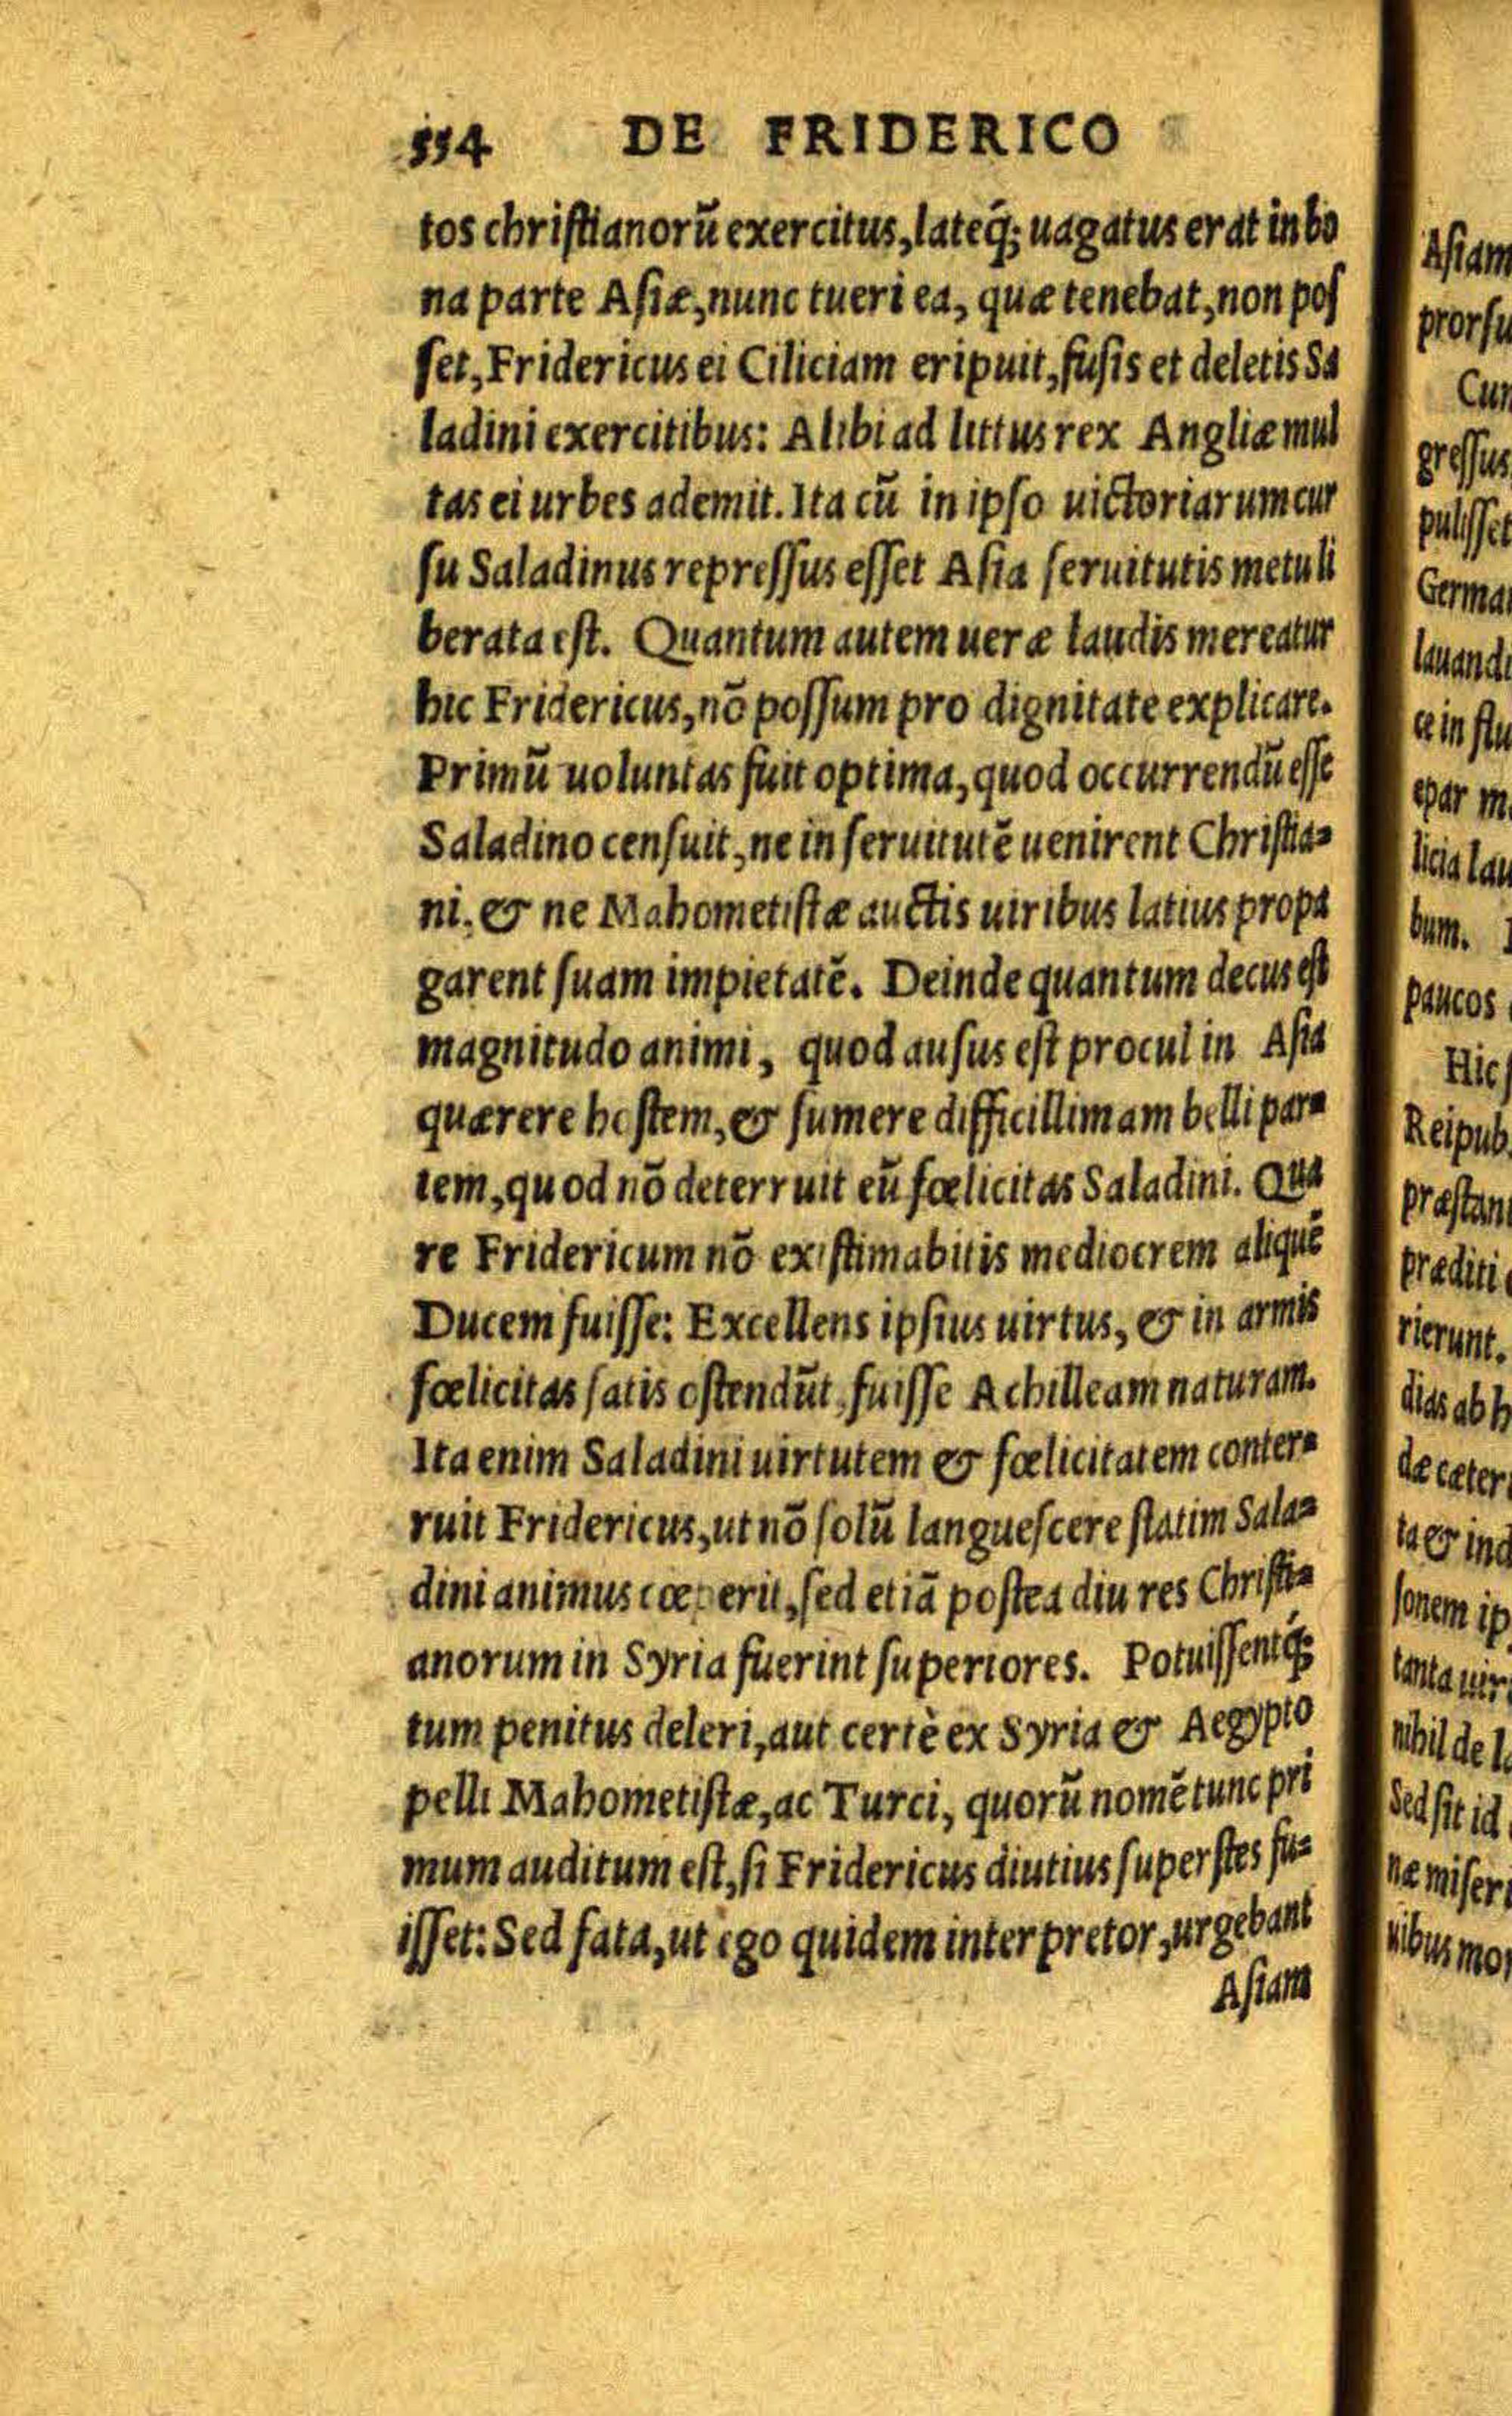 554 DE FRIDERICO
tos christianorū exercitus, lateq́; uagatus erat in bo
na parte Asiæ, nunc tueri ea, quæ tenebat, non pos
set, Fridericus ei Ciliciam eripuit, fusis et deletis Sa
ladini exercitibus: Alibi ad littus rex Angliæ mul
tas ei urbes ademit. Ita cū in ipso uictoriarum cur
su Saladinus repressus esset Asia seruitutis metu li
berata est. Quantum autem ueræ laudis mereatur
hic Fridericus, nō possum pro dignitate explicare.
Primū uoluntas fuit optima, quod occurrendū esse
Saladino censuit, ne in seruitutē uenirent Christia=
ni. & ne Mahometistæ auctis uiribus latius propa
garent suam impietatē. Deinde quantum decus est
magnitudo animi, quod ausus est procul in Asia
quærere hostem, & sumere difficillimam belli par=
tem, quod nō deterruit eū fœlicitas Saladini. Qua
re Fridericum nō existimabitis mediocrem aliquē
Ducem fuisse: Excellens ipsius uirtus, & in armis
fœlicitas satis ostendūt, fuisse Achilleam naturam.
Ita enim Saladini uirtutem & fœlicitatem conter=
ruit Fridericus, ut nō solū languescere statim Sala=
dini animus cœperit, sed etiā postea diu res Christi=
anorum in Syria fuerint superiores. Potuissentq́;
tum penitus deleri, aut certè ex Syria & Aegypto
pelli Mahometistæ, ac Turci, quorū nomē tunc pri
mum auditum est, si Fridericus diutius superstes fu=
isset: Sed fata, ut ego quidem interpretor, urgebant
Asiam
Asiam
prorsu
Cum
gressus
pulisset
Germa
lauandi
ce in flu
epar m
licia lau
bum.
paucos
Hic
Reipub.
præstan
præditi
rierunt.
dias ab h
dæ cæter
ta & ind
sonem ip
tanta uir
nihil de l
Sed sit id
næ miser
uibus mor